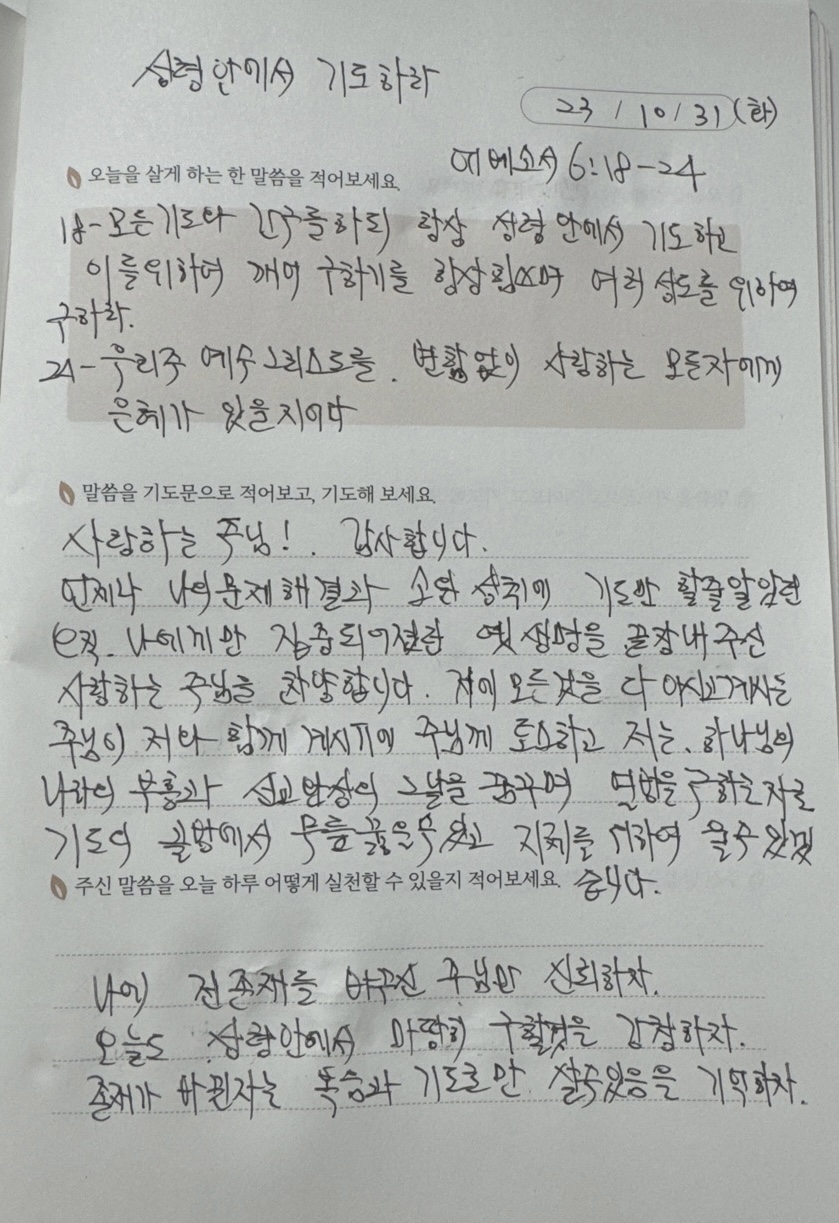 성령안에서 기도하라
23 / 10 / 31 (화)
에베소서 6:18-24
오늘을 살게 하는 한 말씀을 적어보세요.
18- 모든기도와 간구를하되 항상 성령안에서 기도하고
이를위하여 깨어 구하기를 항상힘쓰며 여러 성도를 위하여
구하라.
24- 우리주 예수그리스도를. 변함없이 사랑하는 모든자에게
은혜가 있을지어다
말씀을 기도문으로 적어보고, 기도해 보세요.
사랑하는 주님!. 감사합니다.
언제나 나의문제해결과 소원 성취에 기도만 할줄알았던
나에게만 집중되어졌던 옛생명을 끝장내주신
사랑하는 주님을 찬양합니다. 저의 모든것을 다 아시고계시는
주님이 저와 함께 계시기에 주님께 토스하고 저는. 하나님의
나라의 부흥과 선교완성의 그날을 꿈꾸며 열방을구하는자로
기도의 골방에서 무릎꿇을수있고 지체를 위하여 울수있겠
주신 말씀을 오늘 하루 어떻게 실천할 수 있을지 적어보세요. 습니다.
나의 전존재를 바꾸신 주님만 신뢰하자.
오늘도 성령안에서 마땅히 구할것을 간청하자.
존재가 바뀐자는 복음과 기도로만 살수있음을 기억하자.